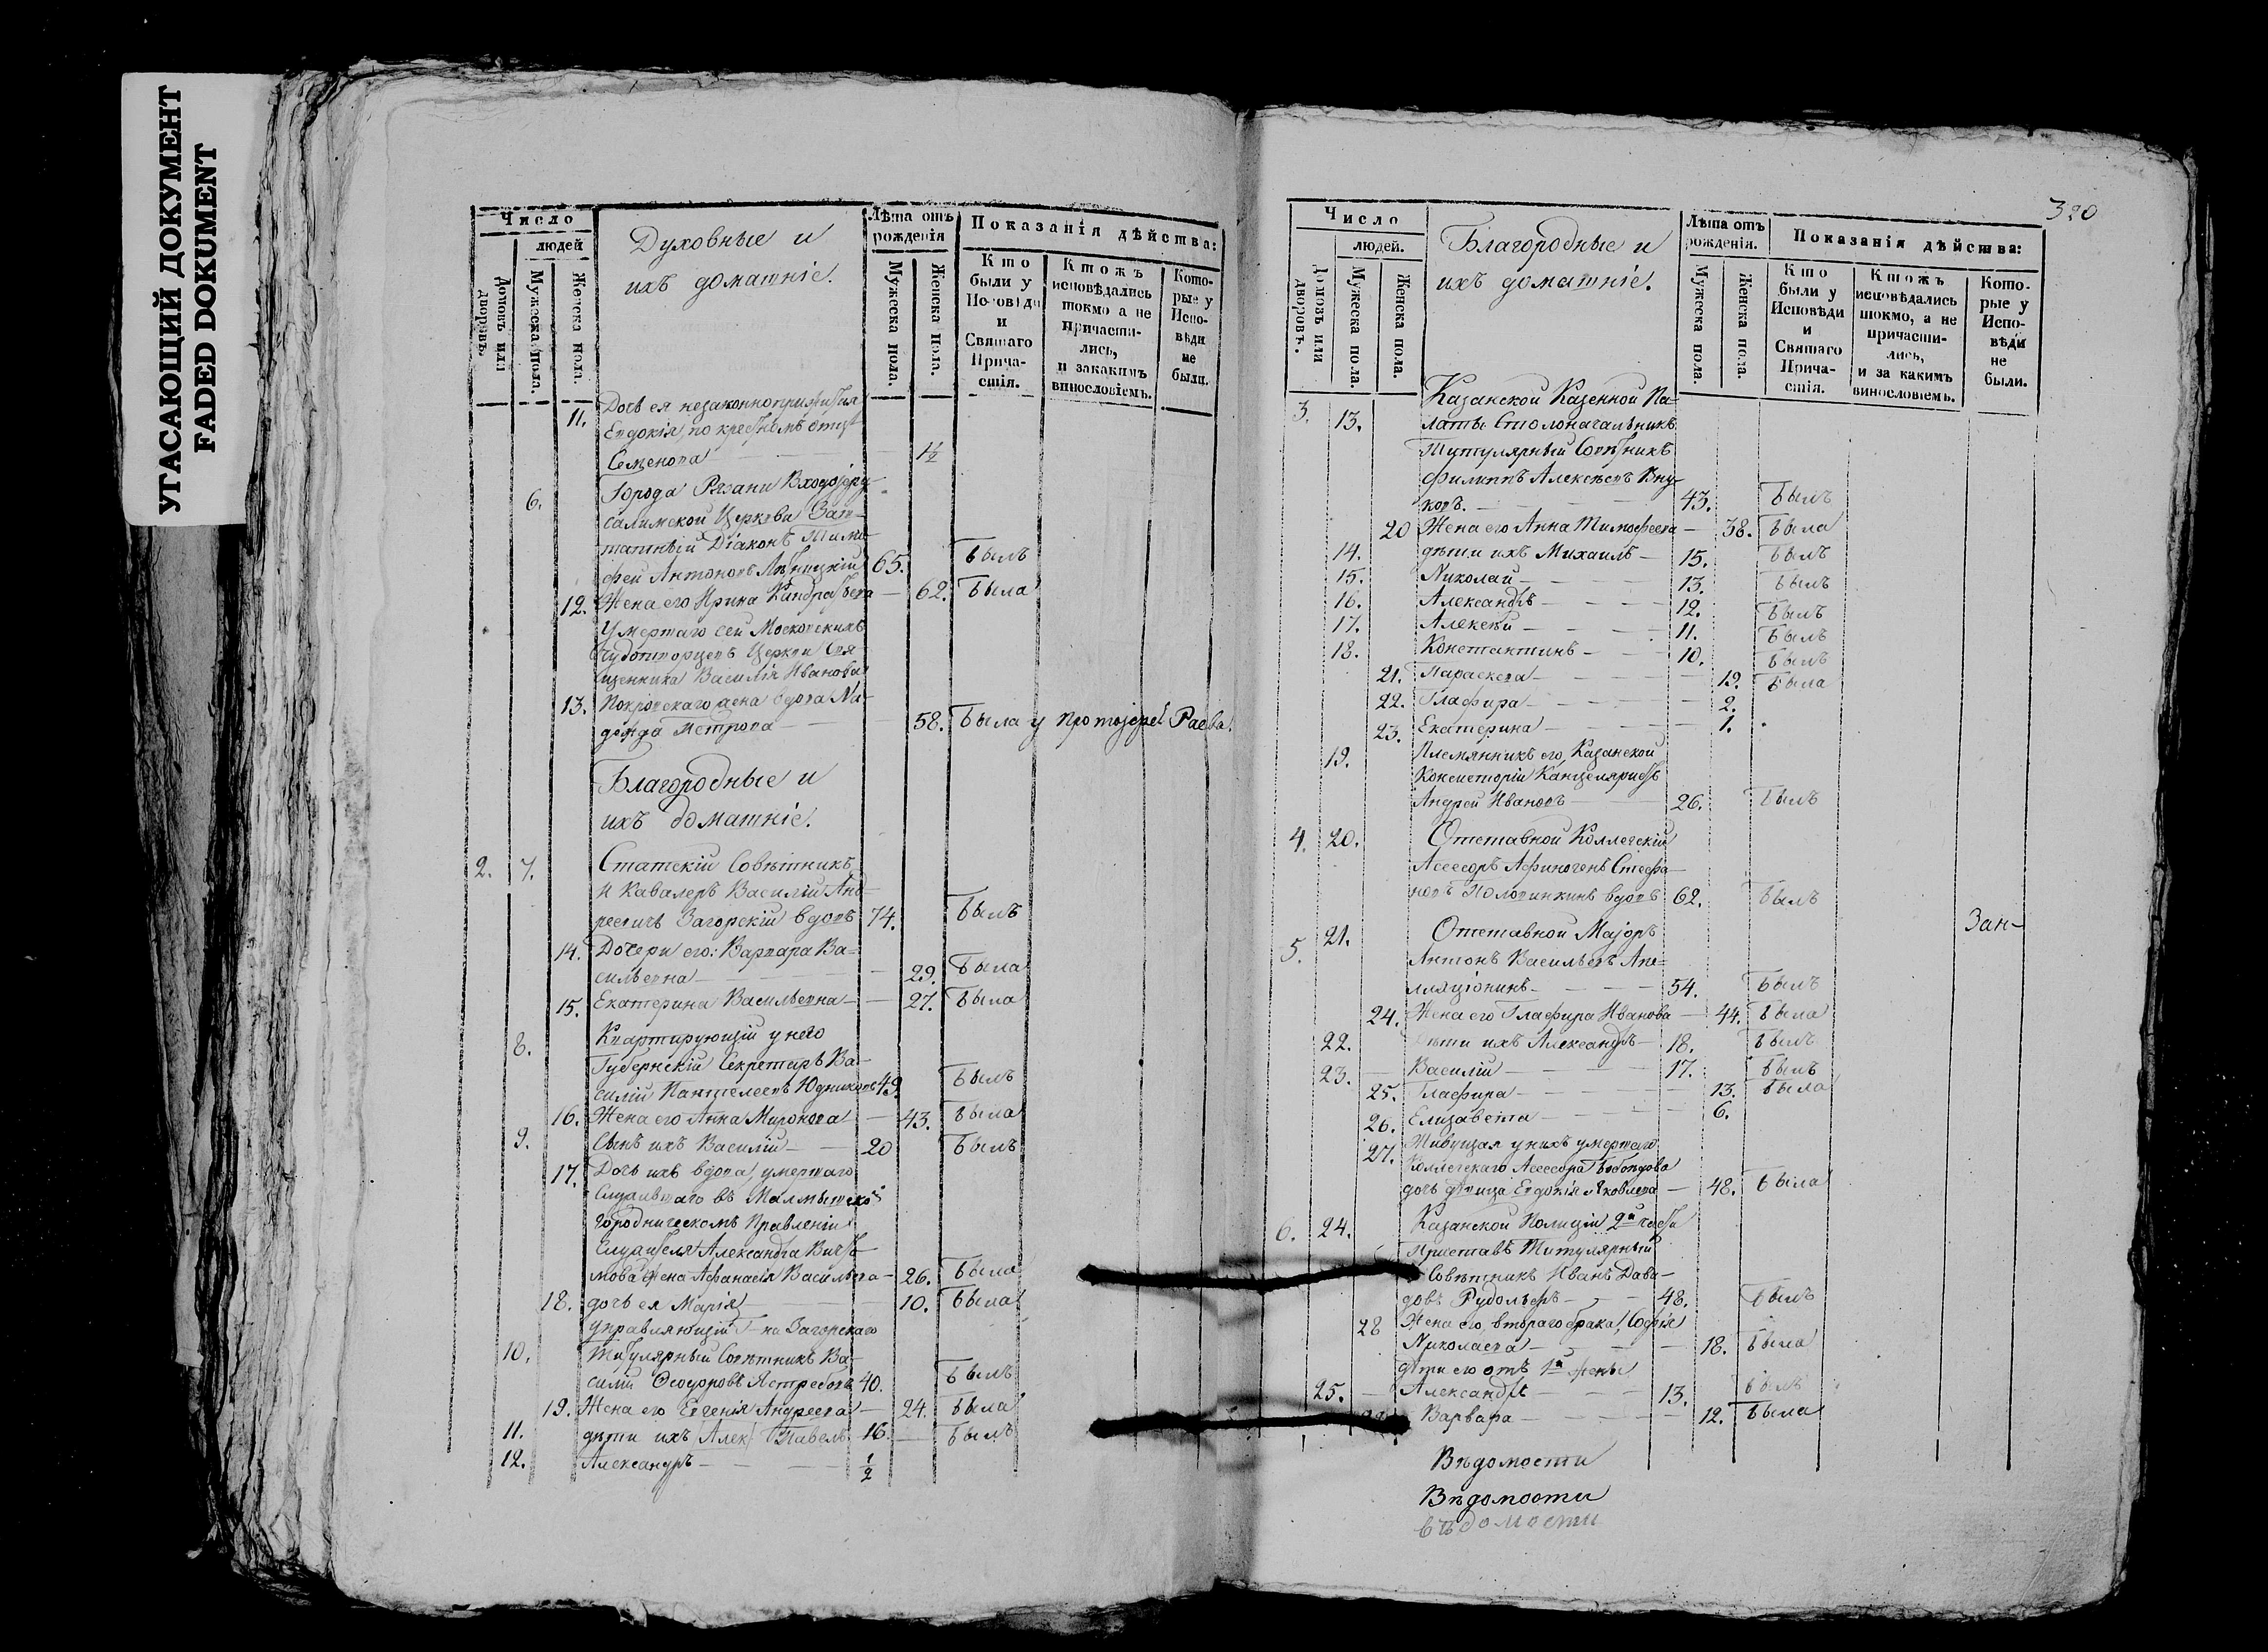 УГАСАЮЩИЙ ДОКУМЕНТ
FADED DOKUMENT
Число
людей
Домовъ или дворовъ.
Мужеска пола.
Женска пола.
Духовные и
ихъ домашніе.
Лѣта отъ
рожденія
Мужеска пола.
Женска пола.
Показанія дѣйства:
Кто
были у
Исповѣди
и
Святаго
Прича-
стія.
Ктожъ
исповѣдались
токмо а не
причасти-
лись,
и закакимъ
винословіемъ.
Кото-
рые у
Испо-
вѣди
не
были.
11. Дочь ея незаконноприжитая
Евдокія, по крестномъ отцѣ
Семенова 1½
6. Города Рязани Входојеру-
салимской Церкви Заш-
татный Діаконъ Тимо-
фей Антоновъ 65. былъ
12. Жена его Ирина Кандратьева — 62. была
Умершаго сей Московскихъ
Чудотворцевъ Церкви Свя-
щенника Василія Иванова
13. Покровскаго жена вдова На-
дежда Петрова 58. была у протојерей Раева.
Благородные и
ихъ домашніе.
2. 7. Статскій Совѣтникъ
и Кавалеръ Василій Анд-
реевичъ Загорскій вдовъ 74. былъ
14. Дочери его: Варвара Ва-
сильевна — 29. была
15. Екатерина Васильевна — 27. была
8. Квартирующій у него
Губернскій Секретарь Ва-
силій Пантелеевъ Юдниковъ 49. былъ
16. Жена его Анна Миронова — 43. была
9. Сынъ ихъ Василій — 20 былъ
17. Дочь ихъ вдова, умершаго
Служившаго въ Малмыжской
городническомъ Правленіи
Служителя Александра
мова жена Афанасія Васильева — 26. была
18. дочь ея Марія — 10. была
Управляющій Г-на Загорскаго
10. Титулярный Совѣтникъ Ва-
силій Ѳеодоровъ Ястребовъ 40. былъ
19. Жена его Евгенія Андреева — 24. была
11. дѣти ихъ Алек Павелъ 16. — былъ
12. Александръ — ½
320
Число
людей.
Домовъ или дворовъ.
Мужеска пола.
Женска пола.
Благородные и
ихъ домашніе.
Лѣта отъ
рожденія.
Мужеска пола.
Женска пола.
Показанія дѣйства:
Кто
были у
Исповѣди
и
Святаго
Прича-
стія.
Ктожъ
исповѣдались
токмо, а не
причасти-
лись,
и за какимъ
винословіемъ.
Кото-
рые у
Испо-
вѣди
не
были.
3. 13. Казанской Казенной Па-
латы Столоначальникъ
Титулярный Совѣтникъ
Филиппъ Алексѣевъ Вну-
ковъ. 43. былъ
20 Жена его Анна Тимофеева — 38. была
14. дѣти ихъ Михаилъ — 15. былъ
15. Николай — 13. былъ
16. Александръ — 12. былъ
17. Алексѣй — 11. былъ
18. Константинъ — 10. былъ
21. Параскева — 19. была
22. Глафира — 2.
23. Екатерина — 1.
19. Племянникъ его, Казанской
Консисторіи Канцеляристъ
Андрей Ивановъ — 26. былъ
4. 20. Отставной Коллегскій
Асессоръ Афиногенъ Стефа-
новъ Половинкинъ вдовъ 62. былъ
5. 21. Отставной Маіоръ
Антонъ Васильевъ Апе-
лляціонинъ — 54. былъ
Зан-
24. Жена его Глафира Иванова — 44. была
22. дѣти ихъ Александръ — 18. былъ
23. Василій — 17. былъ
25. Глафира — 13. была
26. Елизавета — 6.
27. Живущая у нихъ умершаго
Коллегскаго Асессора
дочь дѣвица Евдокія Яковлева — 48. была
6. 24. Казанской Полиціи 2й части
Приставъ Титулярный
Совѣтникъ Иванъ Давы-
довъ Рудольфъ — 48. былъ
28 Жена его втораго брака, Софія
Николаева — 18. была
дѣти его отъ 1й жены
25. Александръ — 13. былъ
Варвара — 12. была
Вѣдомости
Вѣдомости
вѣдомости